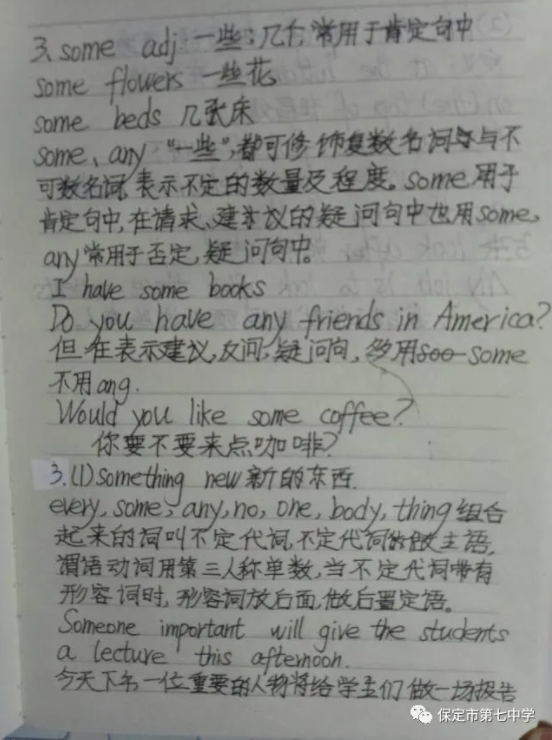 3. some adj 一些;几个,常用于肯定句中
some flowers 一些花
some beds 几张床
some、any "一些",都可修饰复数名词与不
可数名词,表示不定的数量及程度。some用于
肯定句中,在请求、建议的疑问句中也用some。
any常用于否定,疑问句中。
I have some books
Do you have any friends in America?
但在表示建议,反问,疑问句,多用some
不用ang.
Would you like some coffee?
你要不要来点咖啡?
3.(1)something new新的东西.
every,some,any,no,one,body,thing组合
起来的词叫不定代词,不定代词做主语,
谓语动词用第三人称单数,当不定代词带有
形容词时,形容词放后面,做后置定语。
Someone important will give the students
a lecture this afternoon.
今天下午一位重要的人物将给学生们做一场报告
保定市第七中学